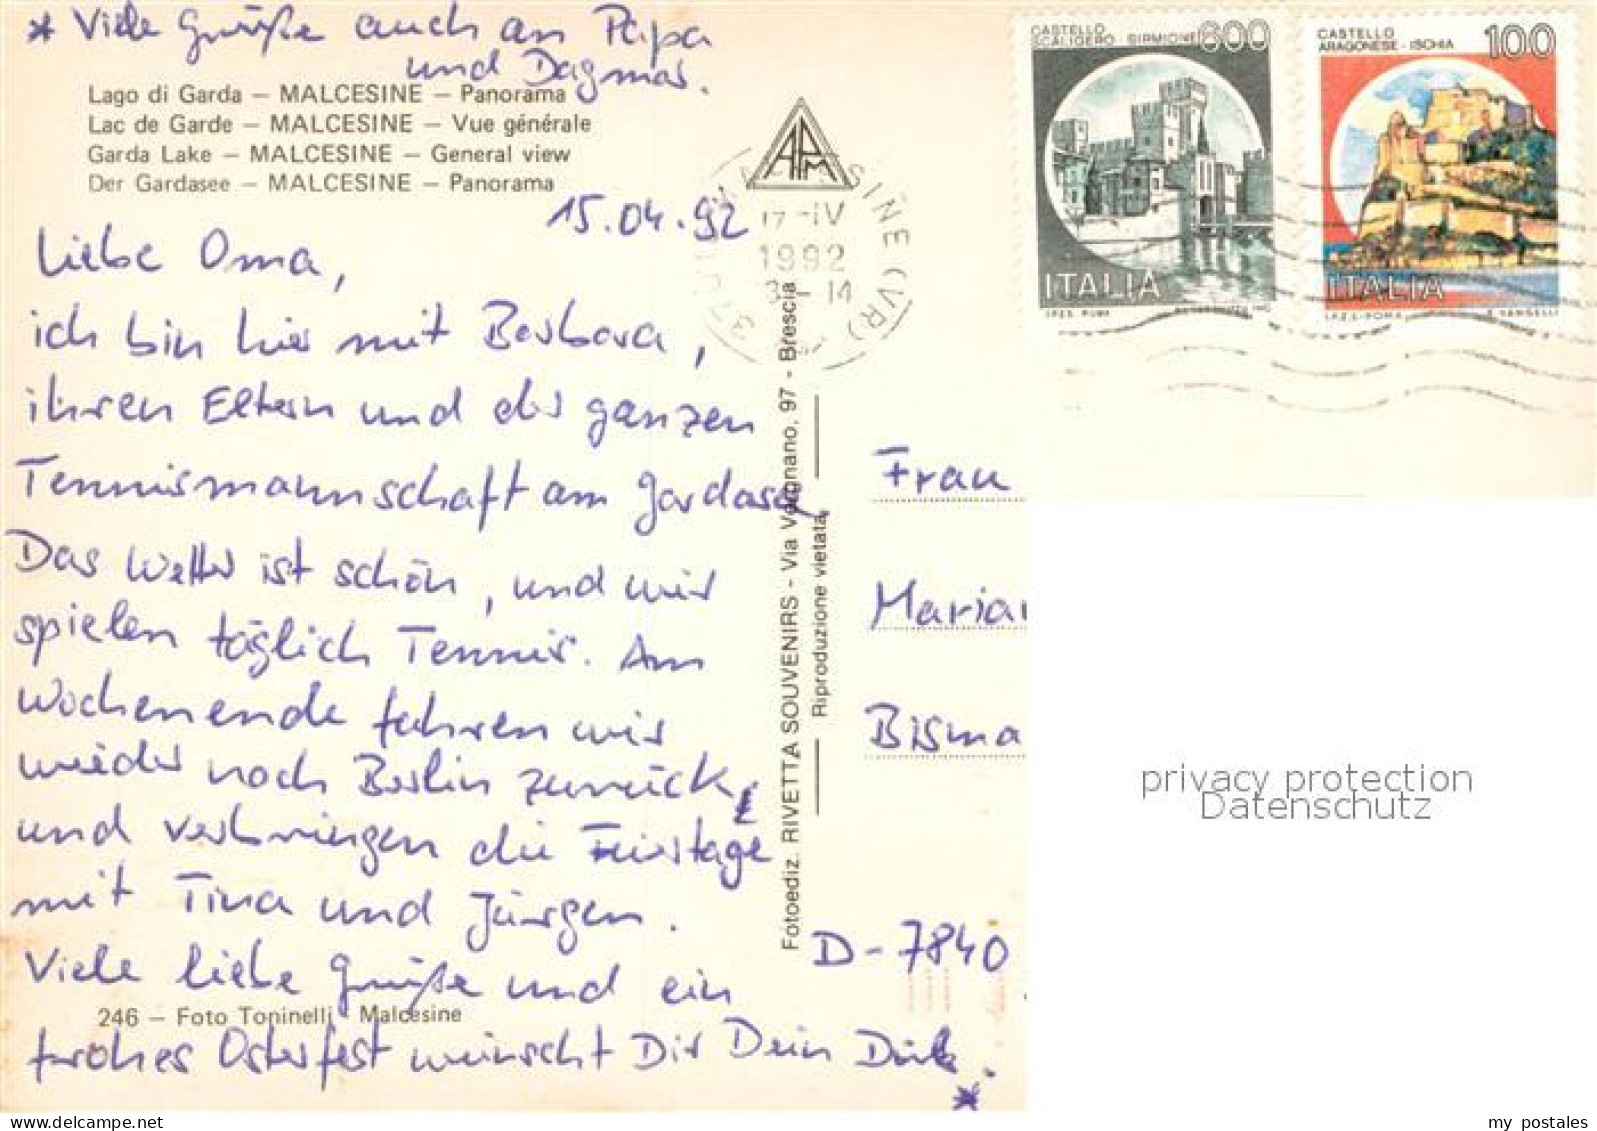 * Viele Grüße auch an Papa
und Dagmar.
Lago di Garda — MALCESINE — Panorama
Lac de Garde — MALCESINE — Vue générale
Garda Lake — MALCESINE — General view
Der Gardasee — MALCESINE — Panorama
15.04.92
Liebe Oma,
ich bin hier mit Barbara,
ihren Eltern und der ganzen
Tennismannschaft am Gardasee
Das Wetter ist schön, und wir
spielen täglich Tennis. Am
Wochenende fahren wir
wieder nach Berlin zurück
und verbringen die Feiertage
mit Tina und Jürgen.
Viele liebe Grüße und ein
246 — Foto Toninelli - Malcesine
frohes Osterfest wünscht Dir Dein Dirk.
*
Fotoediz. RIVETTA SOUVENIRS - Via Verginano, 97 - Brescia
Riproduzione vietata
APM
17-IV
1992
SINE (VR)
CASTELLO
SCALIGERO - SIRMIONE 600
ITALIA
I.P.Z.S. ROMA
CASTELLO
ARAGONESE - ISCHIA 100
ITALIA
I.P.Z.S. - ROMA E. VANGELLI
Frau
Marian
Bisma
D-7840
privacy protection
Datenschutz
my postales